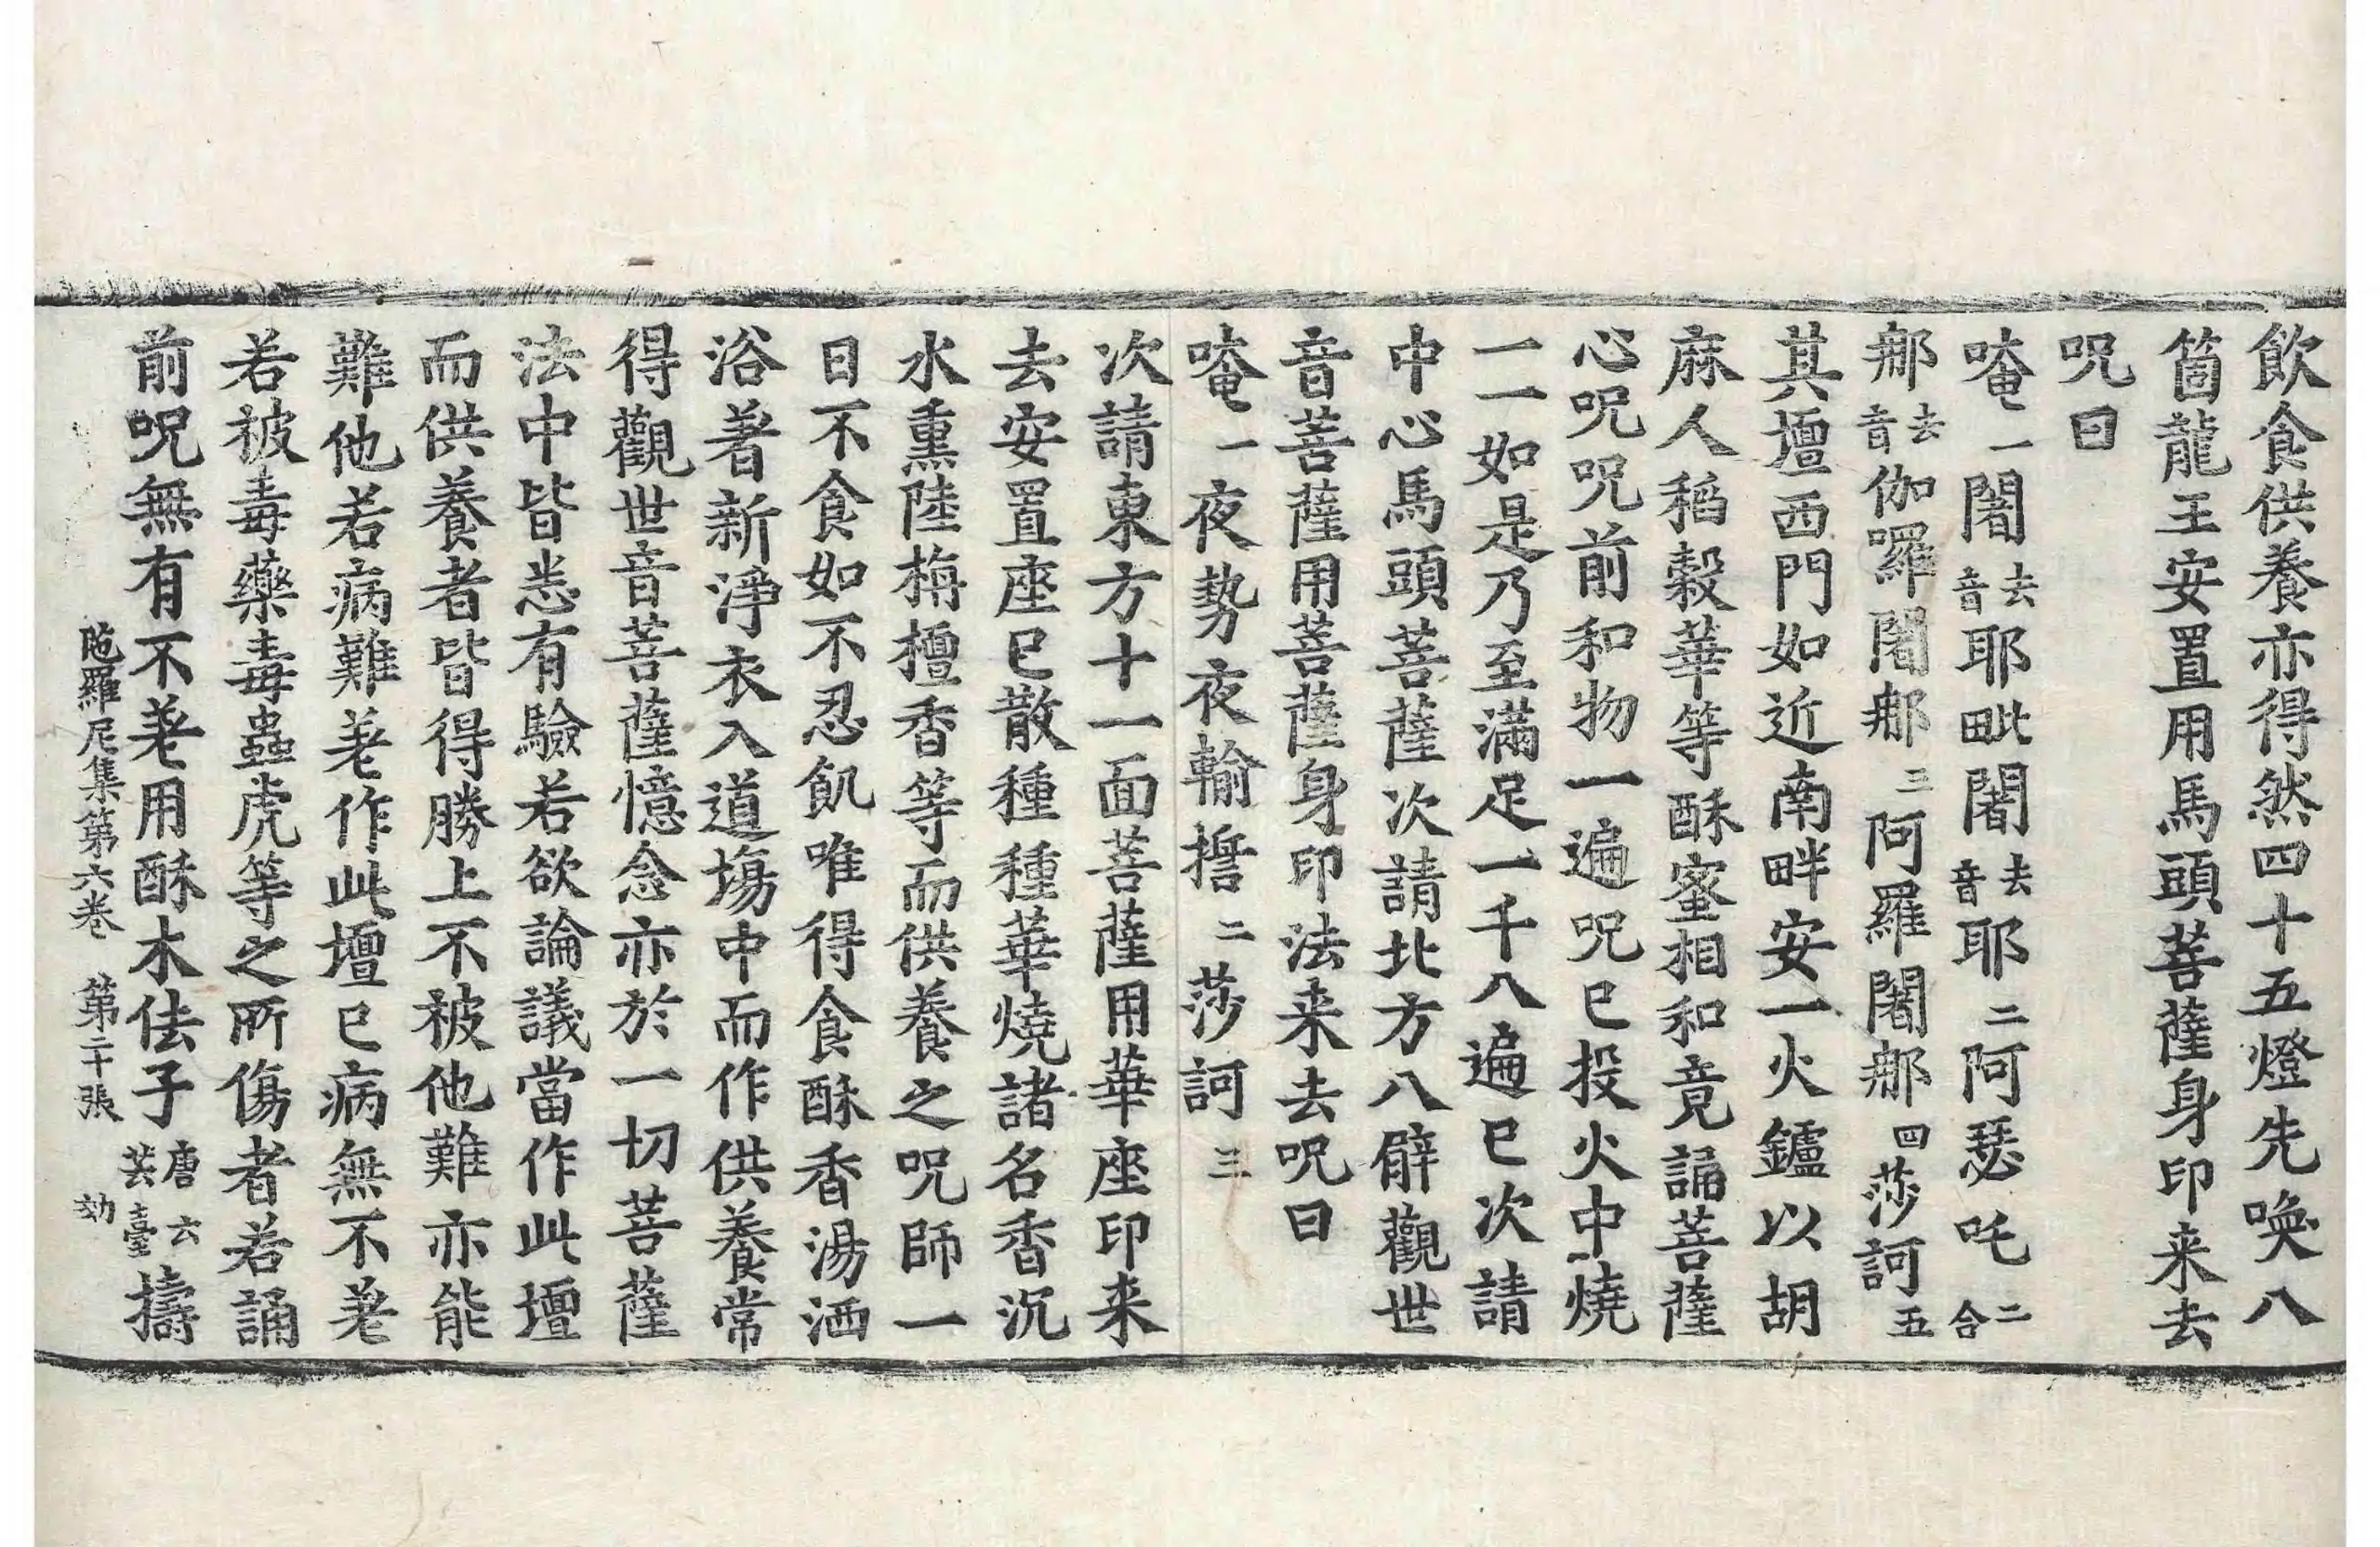 飲食供養亦得然四十五燈先喚八
箇龍王安置用馬頭菩薩身印来去
呪曰
唵一闍去音耶毗闍去音耶二阿瑟吒二合
那去音伽囉闍那三阿羅闍那四莎訶五
其壇西門如近南畔安一火鑪以胡
麻人稻穀華等酥蜜相和竟誦菩薩
心呪呪前和物一遍呪已投火中燒
一一如是乃至滿足一千八遍已次請
中心馬頭菩薩次請北方八臂觀世
音菩薩用菩薩身印法来去呪曰
唵一夜勢夜輸㨗二莎訶三
次請東方十一面菩薩用華座印来
去安置座已散種種華燒諸名香沉
水熏陸栴檀香等而供養之呪師一
日不食如不忍飢唯得食酥香湯洒
浴著新淨衣入道場中而作供養常
得觀世音菩薩憶念亦於一切菩薩
法中皆悉有驗若欲論議當作此壇
而供養者皆得勝上不被他難亦能
難他若病難差作此壇已病無不差
若被毒藥毒蟲虎等之所傷者若誦
前呪無有不差用酥木佉子唐云芸薹擣
陁羅尼集第六卷 第二十張 効